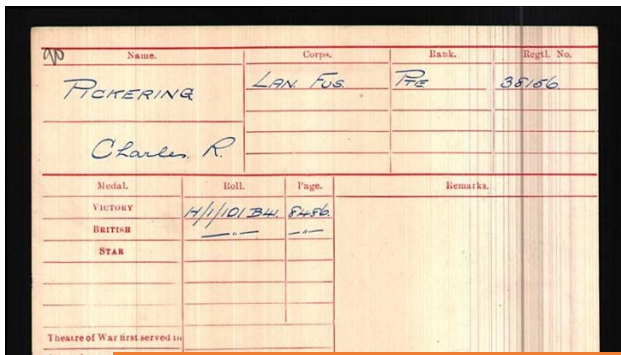 90
Name. Corps. Rank. Regtl. No.
PICKERING LAN. FUS. PTE 38156
Charles. R.
Medal. Roll. Page. Remarks.
VICTORY H/1/101 B41. 8486.
BRITISH — " — — " —
STAR
Theatre of War first served in